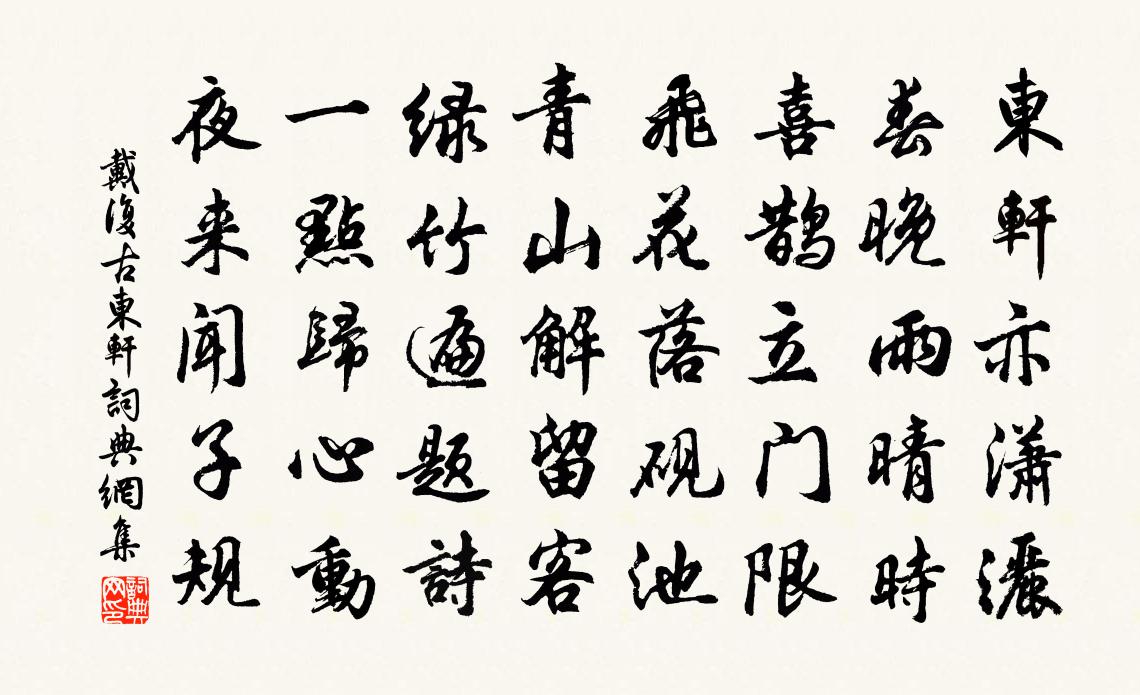 東軒亦瀟灑
春晚雨晴時
喜鵲立门限
飛花落硯池
青山解留客
绿竹遍题詩
一點歸心動
夜来闻子規
戴復古東軒詞典網集
詞典网印